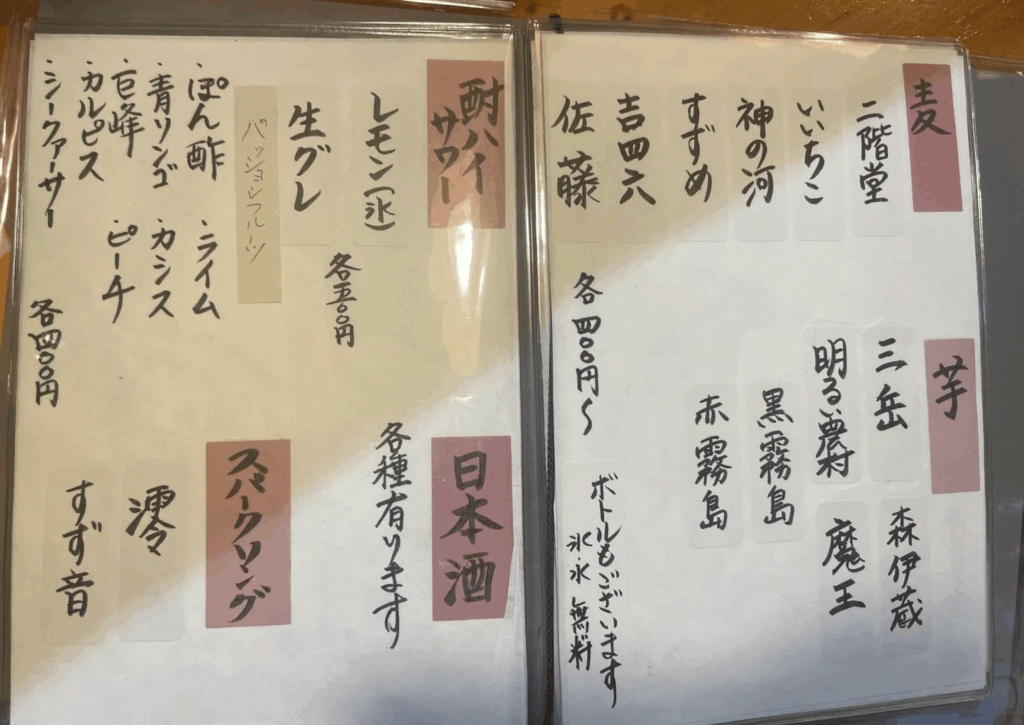 麦
二階堂
いいちこ
神の河
すずめ
吉四六
佐藤
各四〇〇円〜
芋
三岳
明るい農村
黒霧島
赤霧島
森伊蔵
魔王
ボトルもございます
氷水 無料
酎ハイ
サワー
レモン(氷)
生グレ
各五〇〇円
パッションフルーツ
・ぽん酢
・青リンゴ
・巨峰
・カルピス
・シークァーサー
・ライム
・カシス
・ピーチ
各四〇〇円
日本酒
各種有ります
スパークリング
澪
すず音